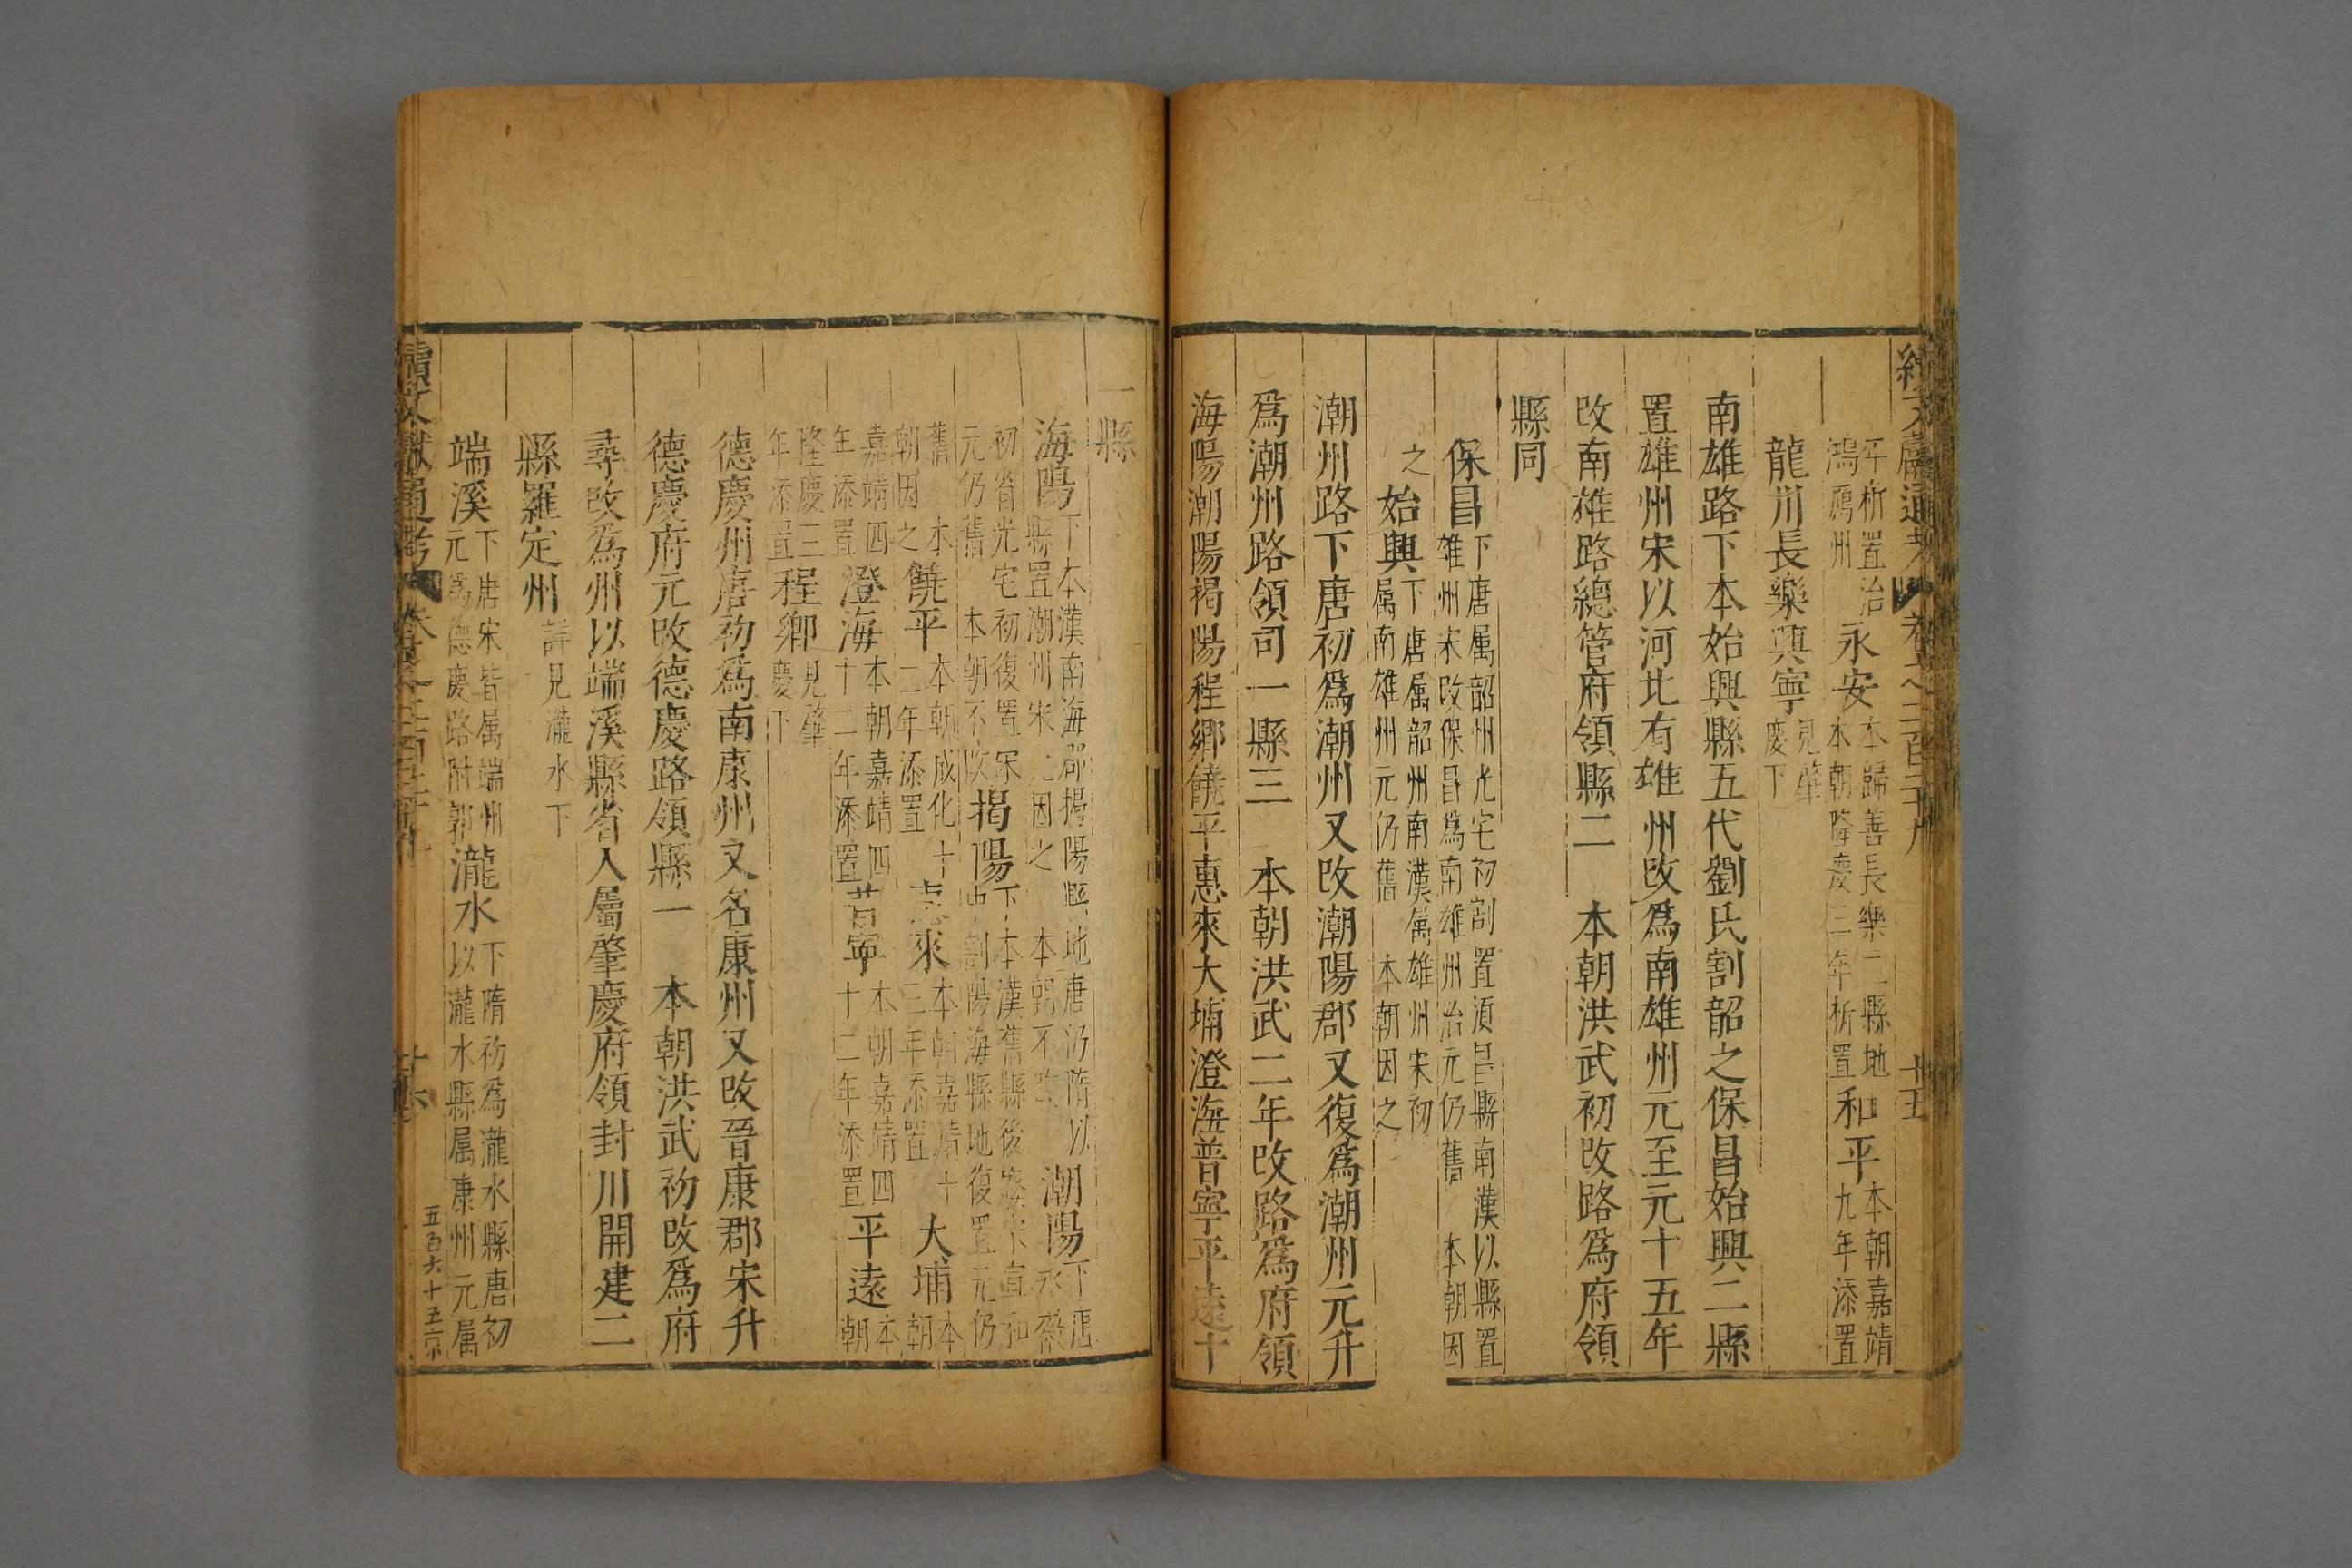 年析置治永安本歸善長樂二縣地和平本朝嘉靖
鴻鴈州本朝隆慶三年析置九年添置
龍川長樂興寧見肇慶下
南雄路下本始興縣五代劉氏割韶之保昌始興二縣
置雄州宋以河北有雄州改爲南雄州元至元十五年
改南雄路總管府領縣二本朝洪武初改路爲府領
縣同
保昌下唐属韶州光宅初割置湏昌縣南漢以縣置
雄州宋改保昌爲南雄州治元仍舊本朝因
之始興下唐属韶州南漢属雄州宋初
属南雄州元仍舊本朝因之
潮州路下唐初爲潮州又改潮陽郡又復爲潮州元升
爲潮州路領司一縣三本朝洪武二年改路爲府領
海陽潮陽揭陽程鄉饒平惠來大埔澄海普寧平遠十
一縣
海陽下本漢南海郡揭陽縣地唐仍隋以潮陽下唐
縣置潮州宋元因之本朝不改永徽
初省先宅初復置宋元仍舊本朝不改揭陽下本漢舊縣後廢宋宣和
中割海陽縣地復置元仍
舊本朝因之饒平本朝成化十二年添置惠來本朝嘉靖十三年添置大埔本朝
嘉靖四年添置澄海本朝嘉靖四十二年添置普寧本朝嘉靖四十二年添置平遠本朝
隆慶三年添置程鄉見肇慶下
德慶州唐初爲南康州又名康州又改晉康郡宋升
德慶府元改德慶路領縣一本朝洪武初改爲府
尋改爲州以端溪縣省入屬肇慶府領封川開建二
縣羅定州詳見瀧水下
端溪下唐宋皆属端州瀧水下隋初爲瀧水縣唐初
元爲德慶路附郭以瀧水縣属康州元属
五百六十五